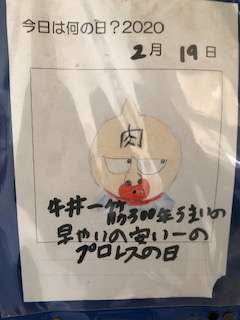 今日は何の日？2020
2月 19日
肉
牛丼一筋300年うまいの
早やいの安い一の
プロレスの日